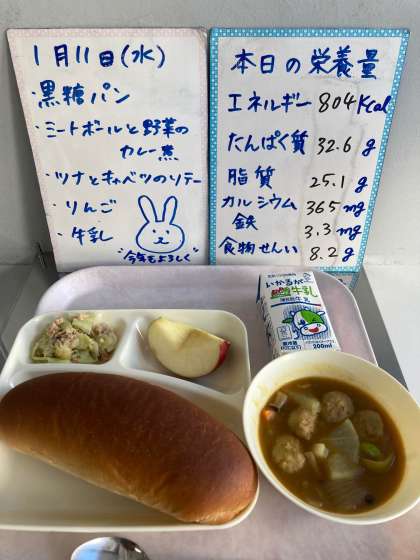 1月11日(水)
・黒糖パン
・ミートボールと野菜の
カレー煮
・ツナとキャベツのソテー
・りんご
・牛乳
"今年もよろしく"
本日の栄養量
エネルギー 804Kcal
たんぱく質 32.6g
脂質 25.1g
カルシウム 365mg
鉄 3.3mg
食物せんい 8.2g
いかるが
牛乳
200ml